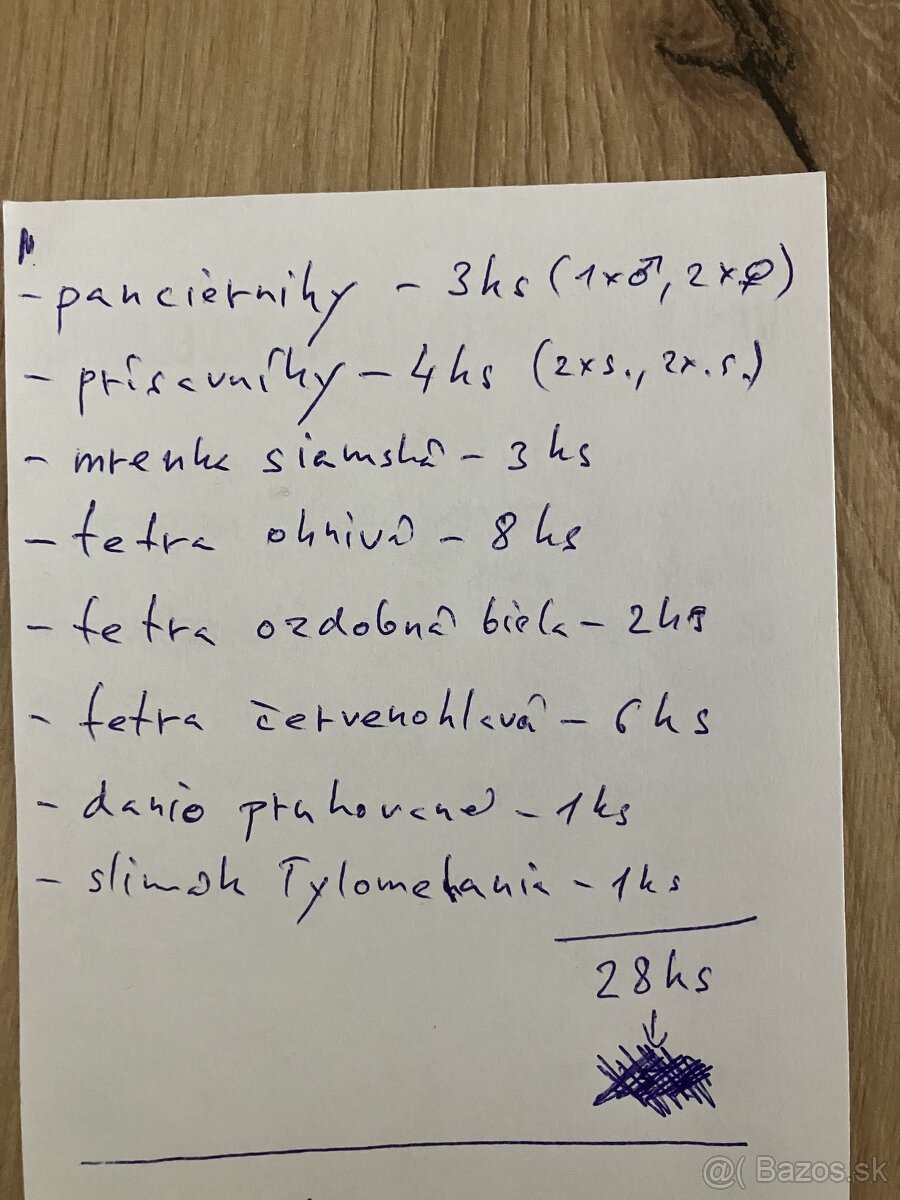 - panciérniky - 3ks (1x♂, 2x♀)
- prísavníky - 4ks (2xs., 2x.s.)
- mrenka siamská - 3ks
- tetra ohnivá - 8ks
- tetra ozdobná biela - 2ks
- tetra červenohlavá - 6ks
- danio pruhované - 1ks
- slimák Tylomelania - 1ks
28ks
@( Bazos.sk